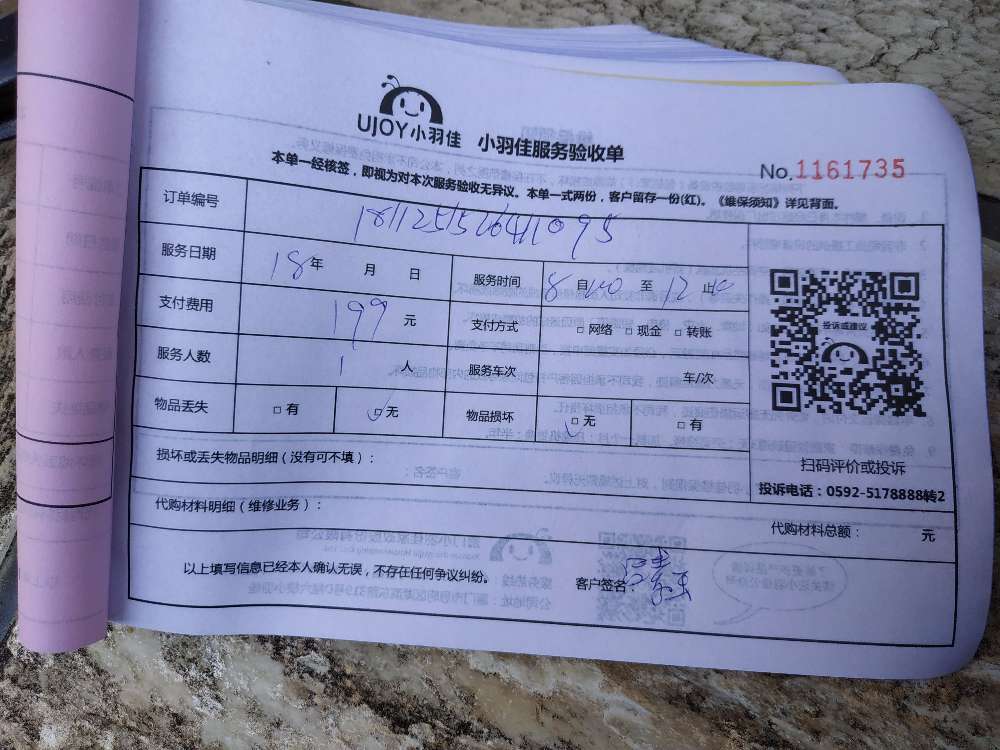 UJOY小羽佳 小羽佳服务验收单
No.1161735
本单一经核签，即视为对本次服务验收无异议。本单一式两份，客户留存一份(红)。《维保须知》详见背面。
订单编号
服务日期 18年 月 日 服务时间 8自 至12止
支付费用 199元 支付方式 □网络 □现金 □转账
服务人数 1人 服务车次 车/次
物品丢失 □有 □无 物品损坏 □无 □有
投诉或建议
扫码评价或投诉
投诉电话：0592-5178888转2
损坏或丢失物品明细（没有可不填）：
代购材料明细（维修业务）： 代购材料总额： 元
以上填写信息已经本人确认无误，不存在任何争议纠纷。 客户签名：